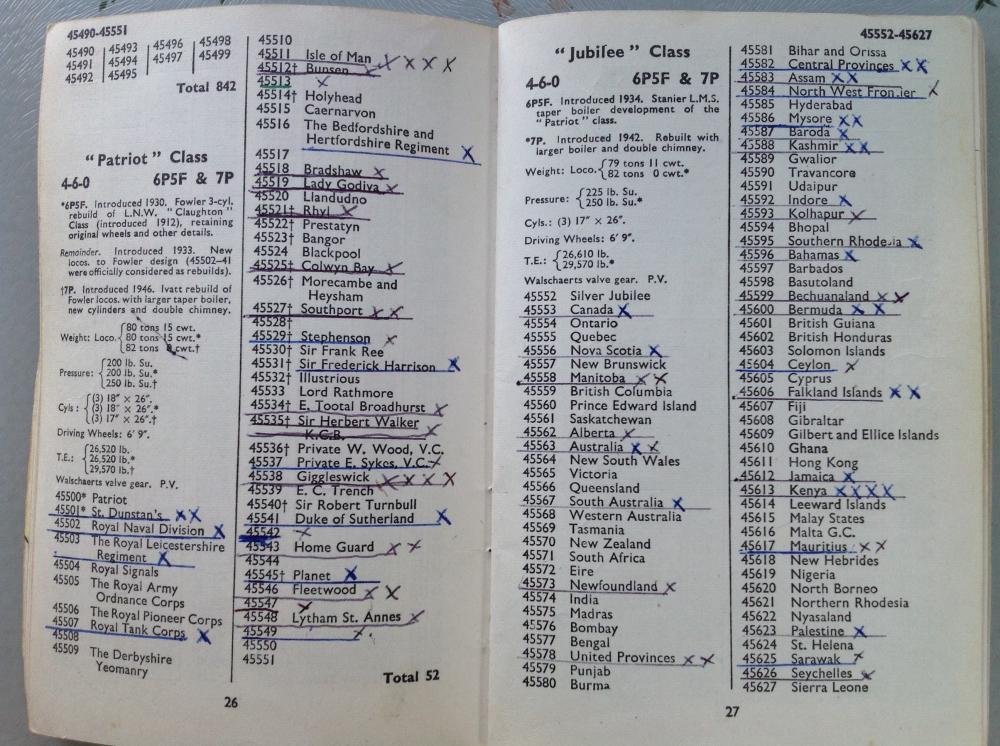 45490-45551
45490 45493 45496 45498
45491 45494 45497 45499
45492 45495
Total 842
"Patriot" Class
4-6-0 6P5F & 7P
*6P5F. Introduced 1930. Fowler 3-cyl.
rebuild of L.N.W. "Claughton"
Class (introduced 1912), retaining
original wheels and other details.
Remainder. Introduced 1933. New
locos. to Fowler design (45502-41
were officially considered as rebuilds).
†7P. Introduced 1946. Ivatt rebuild of
Fowler locos. with larger taper boiler,
new cylinders and double chimney.
Weight: Loco. 80 tons 15 cwt.
80 tons 15 cwt.*
82 tons cwt.†
Pressure: 200 lb. Su.
200 lb. Su.*
250 lb. Su.†
Cyls: (3) 18" × 26".
(3) 18" × 26".*
(3) 17" × 26".†
Driving Wheels: 6' 9".
T.E.: 26,520 lb.
26,520 lb.*
29,570 lb.†
Walschaerts valve gear. P.V.
45500* Patriot
45501* St. Dunstan's X X
45502 Royal Naval Division X
45503 The Royal Leicestershire
Regiment X
45504 Royal Signals
45505 The Royal Army
Ordnance Corps
45506 The Royal Pioneer Corps
45507 Royal Tank Corps X
45508
45509 The Derbyshire
Yeomanry
26
45510
45511 Isle of Man
45512† Bunsen X X X X
45513 X
45514† Holyhead
45515 Caernarvon
45516 The Bedfordshire and
Hertfordshire Regiment X
45517
45518 Bradshaw X
45519 Lady Godiva X
45520 Llandudno
45521† Rhyl X
45522† Prestatyn
45523† Bangor
45524 Blackpool
45525† Colwyn Bay X
45526† Morecambe and
Heysham
45527† Southport X X
45528†
45529† Stephenson X
45530† Sir Frank Ree
45531† Sir Frederick Harrison X
45532† Illustrious
45533 Lord Rathmore
45534† E. Tootal Broadhurst X
45535† Sir Herbert Walker
K.C.B. X
45536† Private W. Wood, V.C.
45537 Private E. Sykes, V.C. X
45538 Giggleswick X X X X
45539 E. C. Trench
45540† Sir Robert Turnbull
45541 Duke of Sutherland X
45542 X
45543 Home Guard X X
45544
45545† Planet X
45546 Fleetwood X X
45547 X
45548 Lytham St. Annes X
45549 X
45550
45551
Total 52
45552-45627
"Jubilee" Class
4-6-0 6P5F & 7P
6P5F. Introduced 1934. Stanier L.M.S.
taper boiler development of the
"Patriot" class.
*7P. Introduced 1942. Rebuilt with
larger boiler and double chimney.
Weight: Loco. 79 tons 11 cwt.
82 tons 0 cwt.*
Pressure: 225 lb. Su.
250 lb. Su.*
Cyls.: (3) 17" × 26".
Driving Wheels: 6' 9".
T.E.: 26,610 lb.
29,570 lb.*
Walschaerts valve gear. P.V.
45552 Silver Jubilee
45553 Canada X
45554 Ontario
45555 Quebec
45556 Nova Scotia X
45557 New Brunswick
45558 Manitoba X X
45559 British Columbia
45560 Prince Edward Island
45561 Saskatchewan
45562 Alberta X
45563 Australia X X
45564 New South Wales
45565 Victoria
45566 Queensland
45567 South Australia X
45568 Western Australia
45569 Tasmania
45570 New Zealand
45571 South Africa
45572 Eire
45573 Newfoundland X
45574 India
45575 Madras
45576 Bombay
45577 Bengal
45578 United Provinces X X
45579 Punjab
45580 Burma
45581 Bihar and Orissa
45582 Central Provinces X X
45583 Assam X X
45584 North West Frontier X
45585 Hyderabad
45586 Mysore X X
45587 Baroda X
45588 Kashmir X X
45589 Gwalior
45590 Travancore
45591 Udaipur
45592 Indore X
45593 Kolhapur X
45594 Bhopal
45595 Southern Rhodesia X
45596 Bahamas X
45597 Barbados
45598 Basutoland
45599 Bechuanaland X X
45600 Bermuda X X
45601 British Guiana
45602 British Honduras
45603 Solomon Islands
45604 Ceylon X
45605 Cyprus
45606 Falkland Islands X X
45607 Fiji
45608 Gibraltar
45609 Gilbert and Ellice Islands
45610 Ghana
45611 Hong Kong
45612 Jamaica X
45613 Kenya X X X X
45614 Leeward Islands
45615 Malay States
45616 Malta G.C.
45617 Mauritius X X
45618 New Hebrides
45619 Nigeria
45620 North Borneo
45621 Northern Rhodesia
45622 Nyasaland
45623 Palestine X
45624 St. Helena
45625 Sarawak X
45626 Seychelles X
45627 Sierra Leone
27